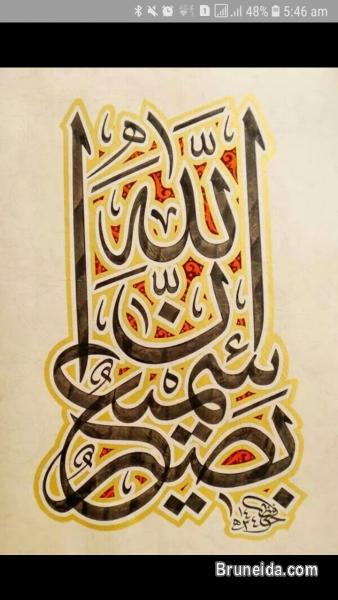 48% 5:46 am
إِنَّ اللَّهَ
سَمِيعٌ
بَصِيرٌ
Bruneida.com